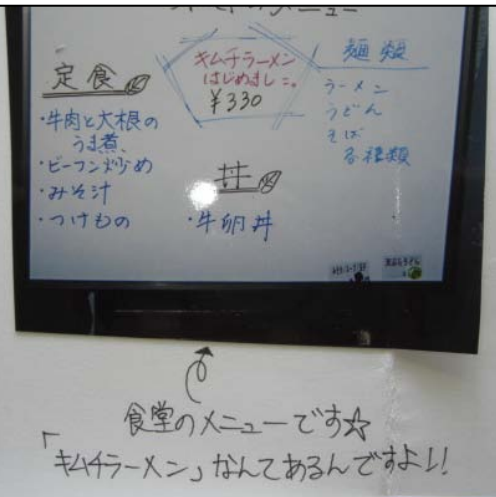 メニュー
定食
・牛肉と大根の
うま煮、
・ビーフン炒め
・みそ汁
・つけもの
キムチラーメン
はじめました。
¥330
丼
・牛卵丼
麺類
ラーメン
うどん
そば
各種類
食堂のメニューです☆
「キムチラーメン」なんてあるんですよ!!